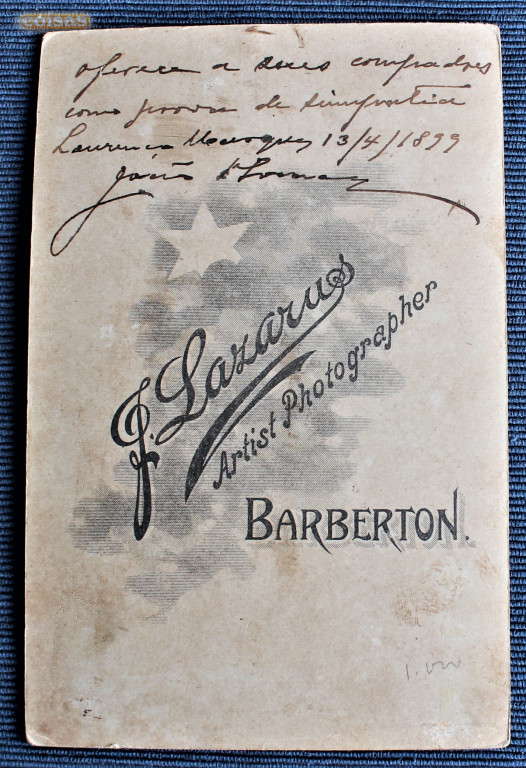 oferece a seus compadres
como prova de simpathia
Lourenço Marques 13/4/1899
João
J. Lazarus
Artist Photographer
BARBERTON.